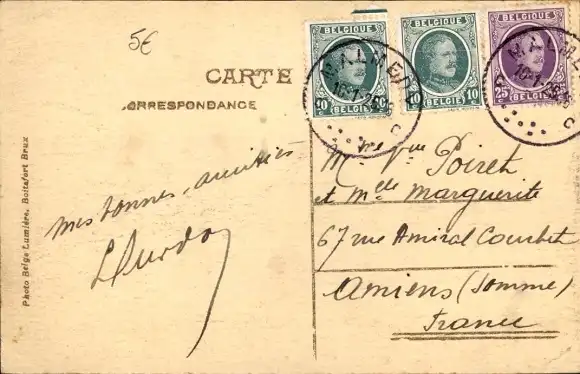 5€
CARTE
CORRESPONDANCE
BELGIQUE
10 10
BELGIË
BELGIQUE
10 10
BELGIË
BELGIQUE
25
BELGIË
MALMEDY
C
MALME
C
Mes bonnes amitiés
Mme Vve Poiret
et Melle Marguerite
67 rue Amiral Courbet
Amiens (Somme)
France
Photo Belge Lumière, Boitsfort Brux